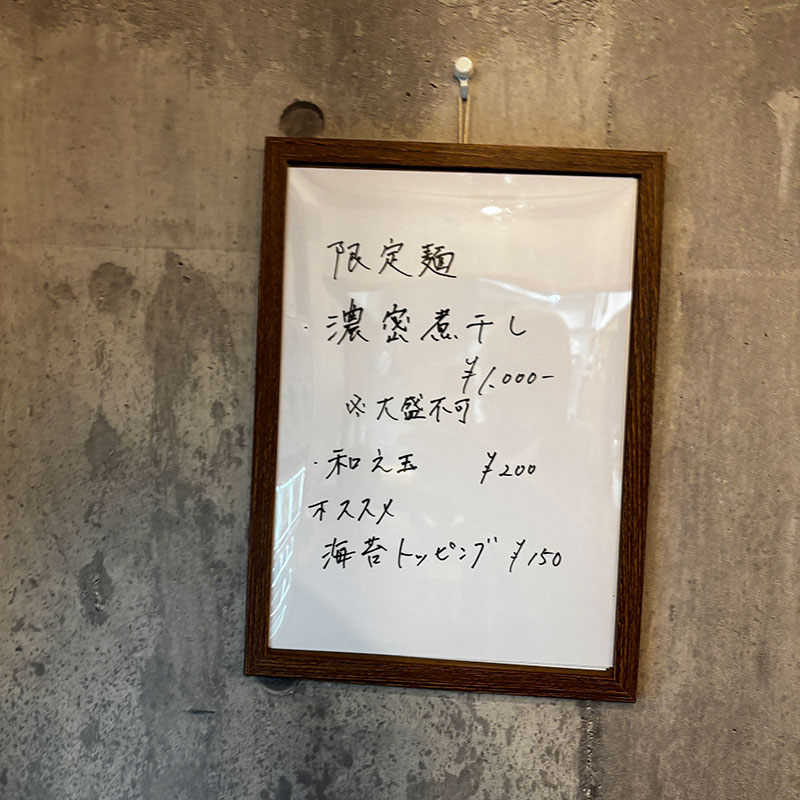 限定麺
・濃密煮干し
¥1.000-
※大盛不可
・和え玉 ¥200
オススメ
海苔トッピング ¥150